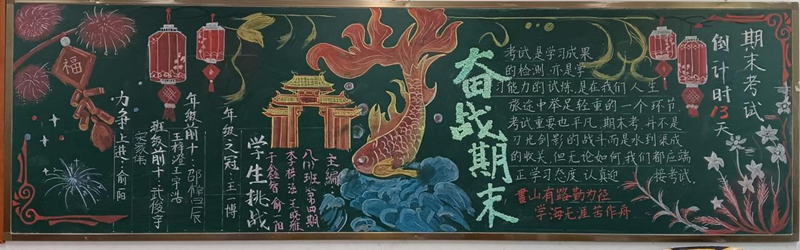 福
力争上进：俞一阳
年级前十：邵修辰
王梓澄 王宇浩
班级前十：武俊宇
年级之冠：王一博
学生挑战
主编
八(1)班 第四期
奋战期末
考试是学习成果
的检测 亦是学
习能力的试炼，是在我们人生
旅途中举足轻重的一个环节
考试重要也平凡，期末考，并不是
刀光剑影的战斗而是水到渠成
的收关，但无论如何，我们都应端
正学习态度 认真迎 接考试
书山有路勤为径
学海无涯苦作舟
期末考试
倒计时13天